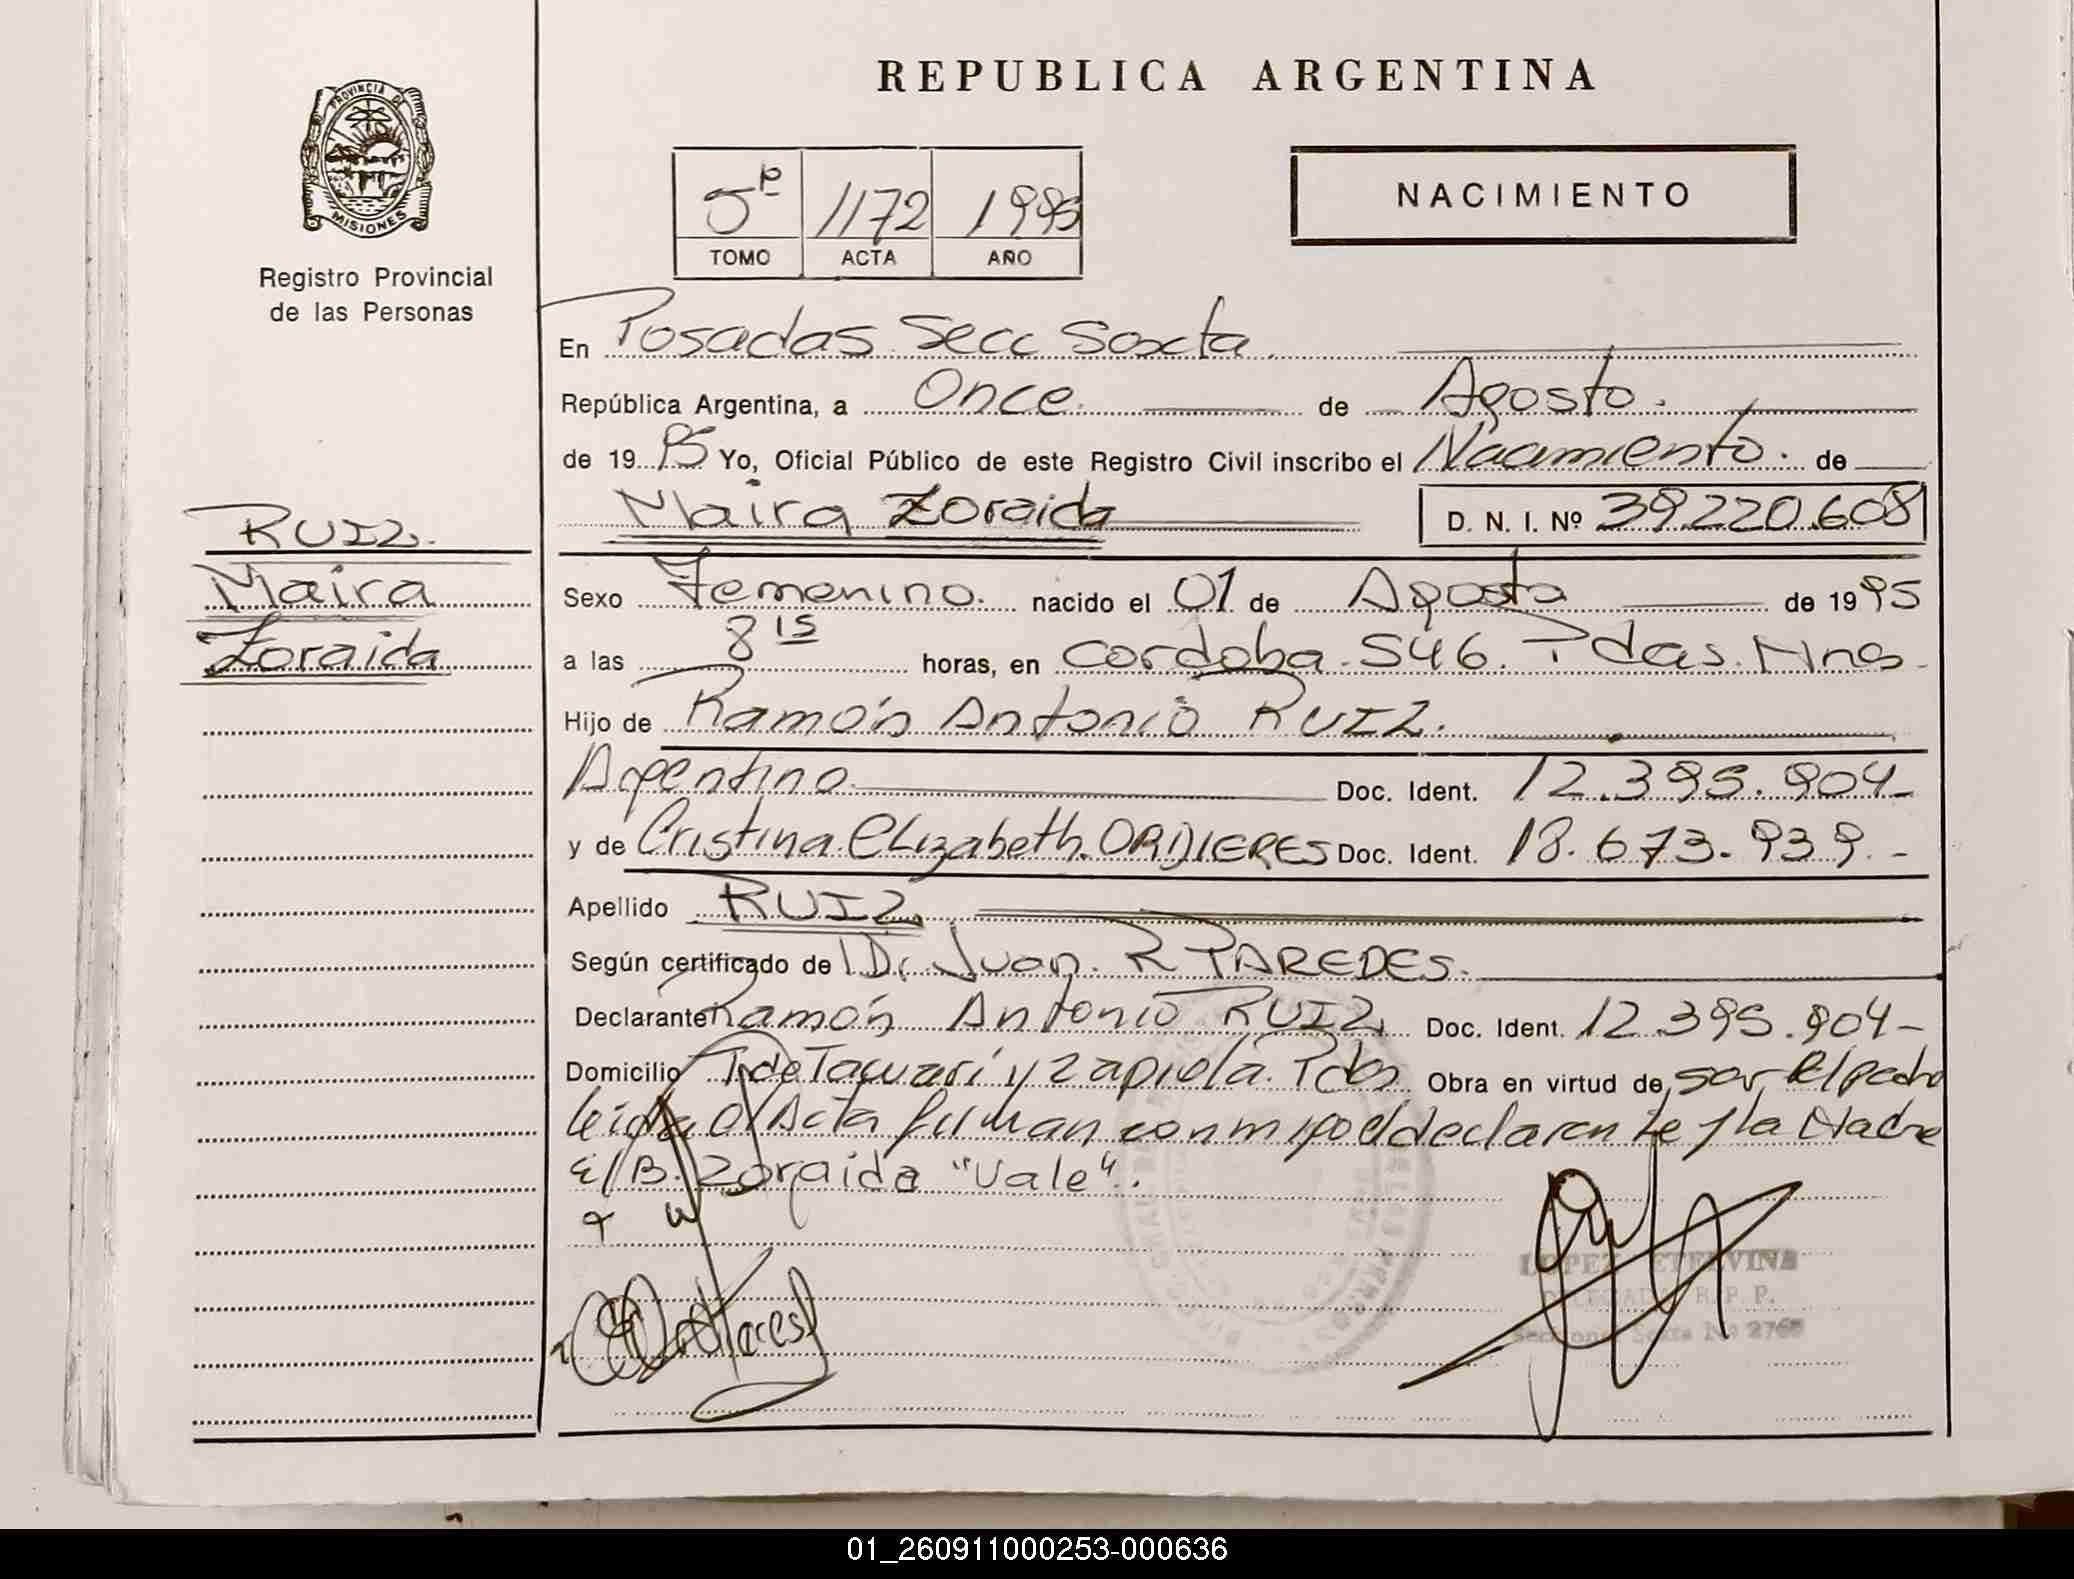 PROVINCIA DE
MISIONES
Registro Provincial
de las Personas
RUIZ.
Maira
Zoraida
REPUBLICA ARGENTINA
5º 1172 1995
TOMO ACTA AÑO
NACIMIENTO
En Posadas Secc Sexta
República Argentina, a Once de Agosto.
de 19 95 Yo, Oficial Público de este Registro Civil inscribo el Nacimiento. de
Maira Zoraida D. N. I. Nº 39.220.608
Sexo Femenino. nacido el 01 de Agosto de 19 95
a las 8 15 horas, en Cordoba 546. Pdas. Mnes.
Hijo de Ramón Antonio RUIZ.
Argentino Doc. Ident. 12.395.904-
y de Cristina Elizabeth. Doc. Ident. 18.673.939.-
Apellido RUIZ
Según certificado de Dr. Juan. R PAREDES.
Declarante Ramón Antonio RUIZ Doc. Ident. 12.395.904-
Domicilio Tacuari y Zapiola. Pdas Obra en virtud de ser El padre
leida el Acta firman conmigo el declarante y la Madre
E/B. Zoraida "Vale".
LOPEZ ETELVINA
DELEGADA R. P. P.
Sexta Nº
01_260911000253-000636